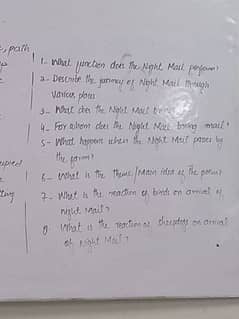 path
1- What function does the Night Mail perform?
2- Describe the journey of Night Mail through
various places.
3- What does the Night Mail bring
4- For whom does the Night Mail bring mail?
5- What happens when the Night Mail passes by
the farm?
6- What is the theme/Main idea of the poem?
7- What is the reaction of birds on arrival of
night Mail?
8- What is the reaction of sheepdogs on arrival
of Night Mail?